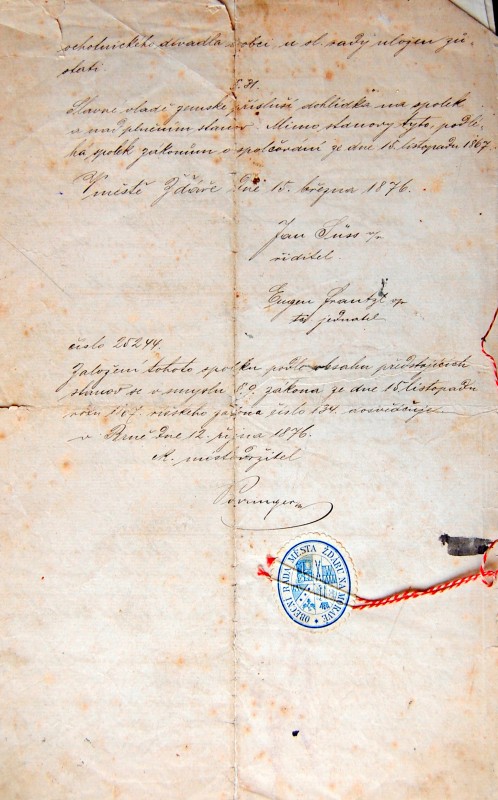 ochotnického divadla v obci, u sl. rady uložen zů-
stati.
§ 31.
Slavné vládě zemské přísluší dohlídka na spolek
a nad plněním stanov. Mimo stanovy tyto, podlé-
há spolek zákonům o spolčování ze dne 15. listopadu 1867.
V městě Žďáře dne 15. března 1876.
Jan Süss v/r
ředitel.
Eugen Frantzl v/r
jednatel
číslo 25244.
Založení tohoto spolku podle obsahu předstojících
stanov se v smyslu § 9. zákona ze dne 15. listopadu
roku 1867. říšského zákona číslo 134. nosvěčuje.
v Brně dne 12. října 1876.
K. místodržitel
OBECNÍ RADA MĚSTA ŽĎÁRU NA MORAVĚ